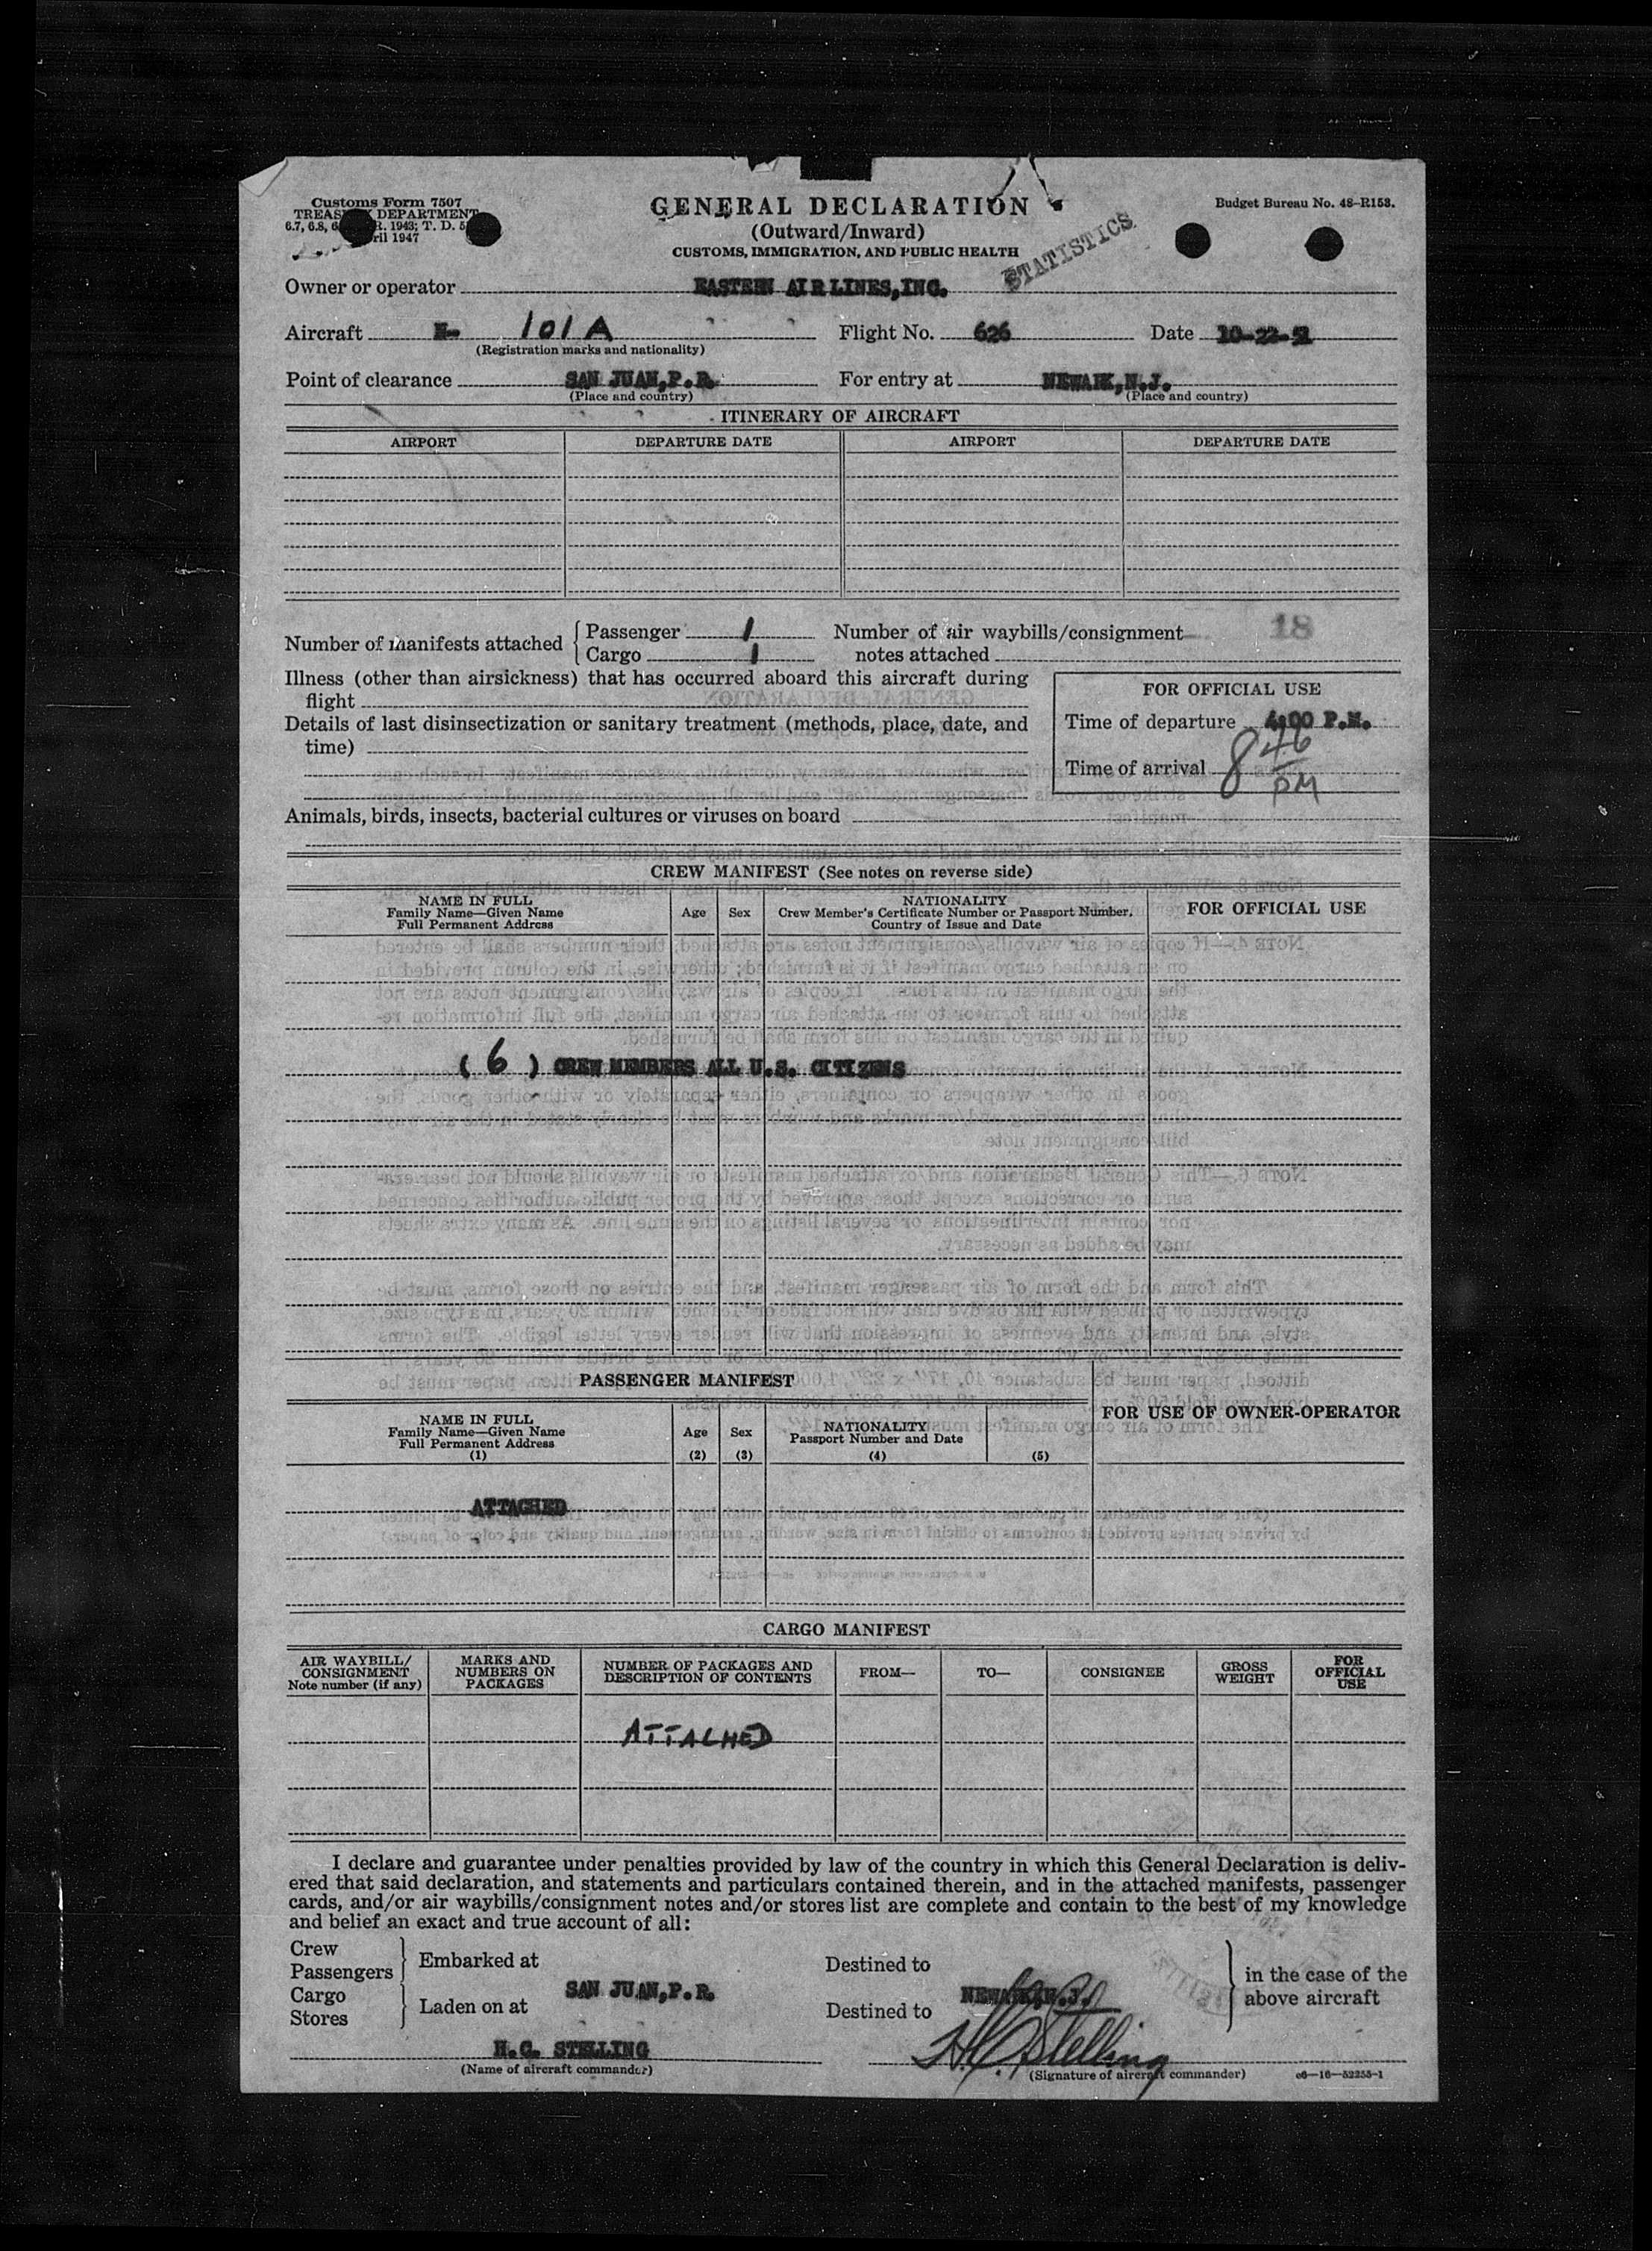 Customs Form 7507
TREASURY DEPARTMENT
6.7, 6.8, R. 1943; T. D.
April 1947
GENERAL DECLARATION
(Outward/Inward)
CUSTOMS, IMMIGRATION, AND PUBLIC HEALTH
Budget Bureau No. 48-R153.
STATISTICS
Owner or operator EASTERN AIR LINES, INC.
Aircraft N- 101A Flight No. 626 Date 10-22-51
(Registration marks and nationality)
Point of clearance SAN JUAN, P. R. For entry at NEWARK, N.J.
(Place and country) (Place and country)
ITINERARY OF AIRCRAFT
AIRPORT DEPARTURE DATE AIRPORT DEPARTURE DATE
Number of manifests attached Passenger 1 Number of air waybills/consignment 18
Cargo 1 notes attached
Illness (other than airsickness) that has occurred aboard this aircraft during
flight
Details of last disinsectization or sanitary treatment (methods, place, date, and
time)
FOR OFFICIAL USE
Time of departure 4:00 P.M.
Time of arrival 8 46 PM
Animals, birds, insects, bacterial cultures or viruses on board
CREW MANIFEST (See notes on reverse side)
NAME IN FULL
Family Name—Given Name
Full Permanent Address
Age Sex
NATIONALITY
Crew Member's Certificate Number or Passport Number,
Country of Issue and Date
FOR OFFICIAL USE
( 6 ) CREW MEMBERS ALL U.S. CITIZENS
PASSENGER MANIFEST
FOR USE OF OWNER-OPERATOR
NAME IN FULL
Family Name—Given Name
Full Permanent Address
(1)
Age
(2)
Sex
(3)
NATIONALITY
Passport Number and Date
(4)
(5)
ATTACHED
CARGO MANIFEST
AIR WAYBILL/
CONSIGNMENT
Note number (if any)
MARKS AND
NUMBERS ON
PACKAGES
NUMBER OF PACKAGES AND
DESCRIPTION OF CONTENTS
FROM—
TO—
CONSIGNEE
GROSS
WEIGHT
FOR
OFFICIAL
USE
ATTACHED
I declare and guarantee under penalties provided by law of the country in which this General Declaration is deliv-
ered that said declaration, and statements and particulars contained therein, and in the attached manifests, passenger
cards, and/or air waybills/consignment notes and/or stores list are complete and contain to the best of my knowledge
and belief an exact and true account of all:
Crew
Passengers
Cargo
Stores
Embarked at
Laden on at
SAN JUAN, P. R.
Destined to
Destined to
NEWARK, N.J.
in the case of the
above aircraft
H.C. STELLING
(Name of aircraft commander)
H C Stelling
(Signature of aircraft commander)
c6—16—52255-1